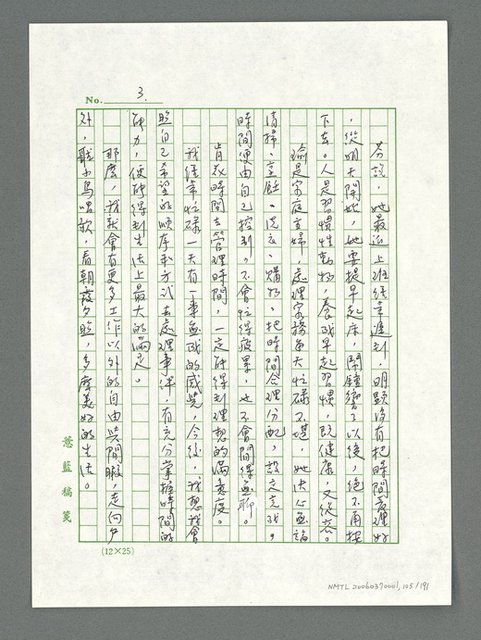 No. 3.
芬說,她最近上班經常遲到,明顯沒有把時間處理好
,從明天開始,她要提早起床,鬧鐘響了以後,絕不再按
下去。人是習慣性動物,養成早起習慣,既健康,又從容。
瑜是家庭主婦,處理家務每天忙碌不堪,她決心無論
清掃、烹飪、洗衣、購物,把時間合理分配,設定完成。
時間便由自己控制。不會忙得疲累,也不會閒得無聊。
肯花時間去管理時間,一定能得到理想的滿意度。
我經常忙碌一天有一事無成的感覺,今後,我想我會
照自己希望的順序和方式去處理事件,有充分掌握時間的
能力,使能得到生活上最大的滿足。
那麼,我就會有更多工作以外的自由與閒暇,走向戶
外,聽小鳥唱歌,看朝霞夕照,多麼美好的生活。
蕙藍稿箋
(12×25)
NMTL20060370001, 105/191